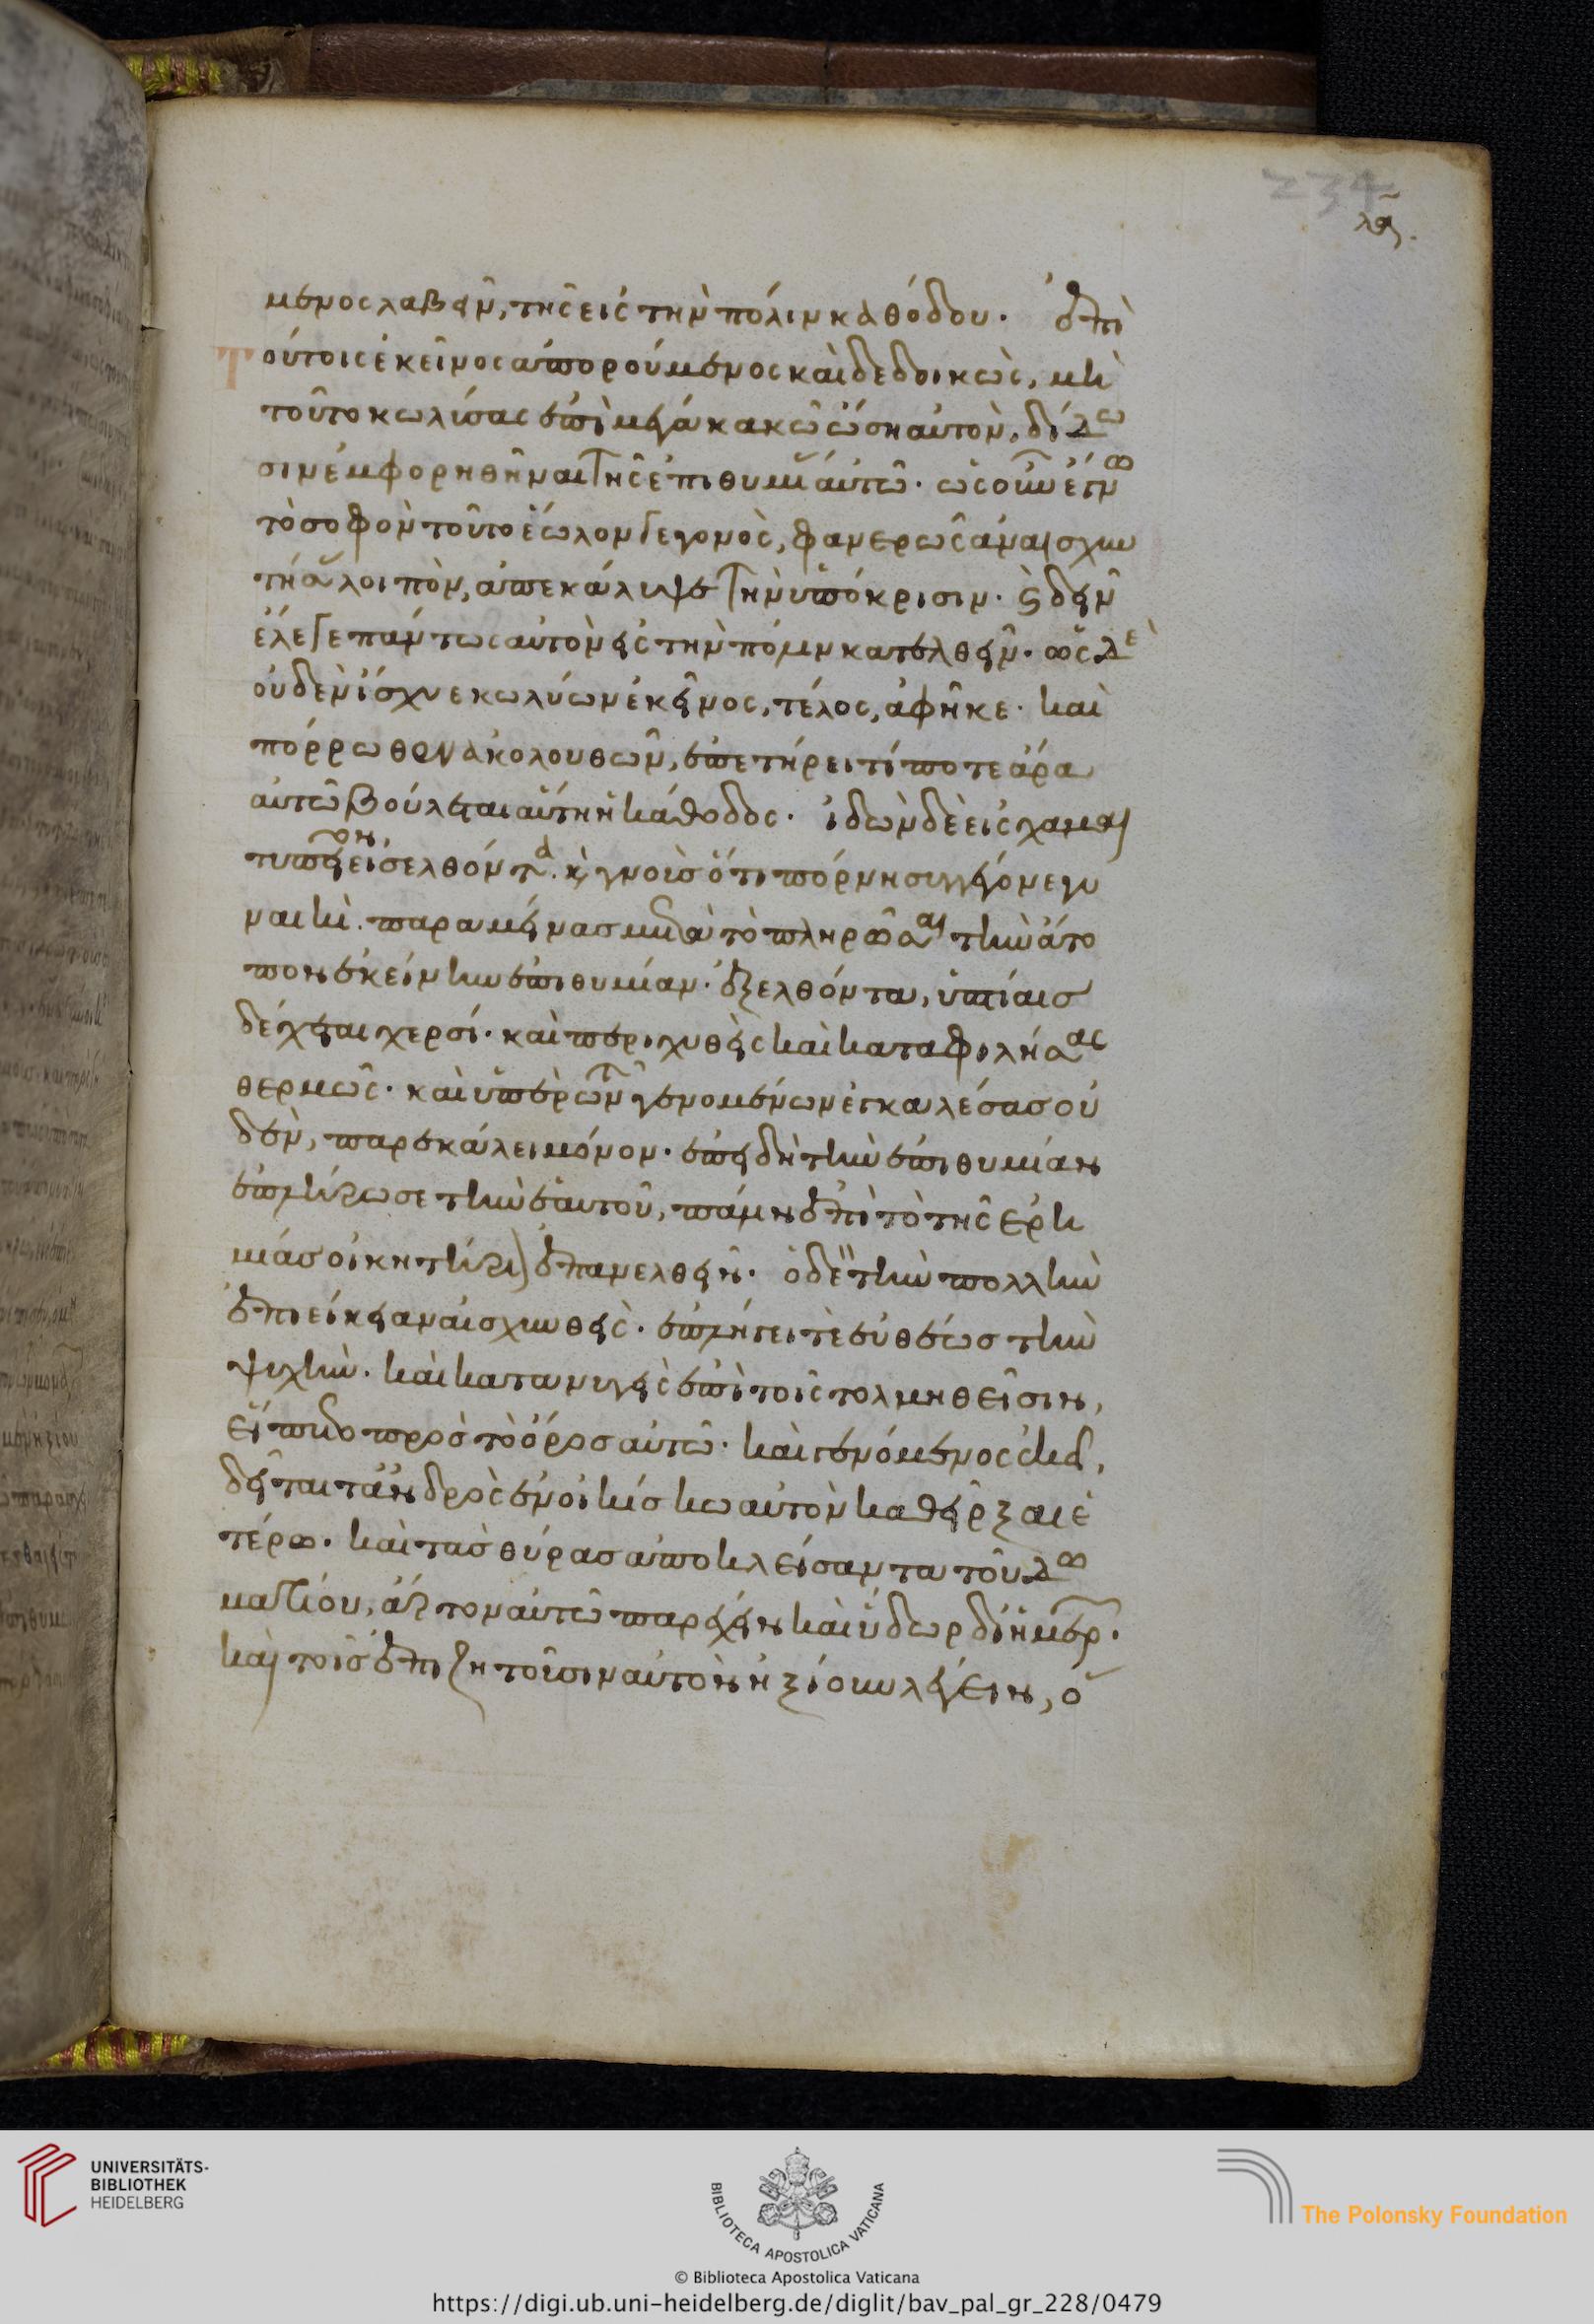 234
μενος λαβεῖν, τῆς εἰς τὴν πόλιν καθόδου. ἐπὶ
τούτοις ἐκεῖνος ἀπορούμενος καὶ δεδοικὼς, μὴ
τοῦτο κωλύσας ἐπὶ μεῖζα κακῶ ὤση αὐτὸν, δίδω
σιν ἐμφορηθῆναι τῆς ἐπιθυμίας αὐτῶ. ὡς οὖν
τὸ σοφὸν τοῦτο ἕωλον γεγονὸς, φανερῶς ἀναισχυν
τήσας λοιπὸν, ἀπεκάλυψε τὴν ὑπόκρισιν. καὶ δεῖν
ἔλεγε πάντως αὐτὸν εἰς τὴν πόλιν κατελθεῖν. ὡς δὲ
οὐδὲν ἴσχυε κωλύων ἐκεῖνος, τέλος, ἀφῆκε. καὶ
πόρρωθεν ἀκολουθῶν, ἐπετήρει τί ποτε ἄρα
αὐτῶ βούλεται αὕτη ἡ κάθοδος. ἰδὼν δὲ εἰς χαμαι
τυπεῖον εἰσελθόντα. καὶ γνοὺς ὅτι πόρνη συγγέγονε γυ
ναικὶ. παραμείνας μετὰ τὸ πληρῶσαι τὴν ἄτο
πον ἐκείνην ἐπιθυμίαν. ἐξελθόντα, ὑπτίαις
δέχεται χερσί. καὶ περιχυθεὶς καὶ καταφιλήσας
θερμῶς. καὶ ὑπὲρ τῶν γενομένων ἐγκαλέσας οὐ
δὲν, παρεκάλει μόνον. ἐπειδὴ τὴν ἐπιθυμίαν
ἐπλήρωσε τὴν ἑαυτοῦ, πάλιν ἐπὶ τὸ τῆς ἐρη
μίας οἰκητήριον ἐπανελθεῖν. ὁ δὲ τὴν πολλὴν
ἐπιείκειαν αἰσχυνθεὶς. ἐπλήγη τὲ εὐθέως τὴν
ψυχὴν. καὶ κατανυγεὶς ἐπὶ τοῖς τολμηθεῖσιν,
εἵπετο πρὸς τὸ ὄρος αὐτῶ. καὶ γενόμενος ἐκεῖ,
δεῖται τἀνδρὸς ἐν οἰκίσκω αὐτὸν καθεῖρξαι ἑ
τέρω. καὶ τὰς θύρας ἀποκλείσαντα τοῦ δω
ματίου, ἄρτον αὐτῶ παρέχειν καὶ ὕδωρ δι' ἡμέρας.
καὶ τοῖς ἐπιζητοῦσιν αὐτὸν ἠξίου λέγειν, ὅ
UNIVERSITÄTS-
BIBLIOTHEK
HEIDELBERG
BIBLIOTECA APOSTOLICA VATICANA
The Polonsky Foundation
© Biblioteca Apostolica Vaticana
https://digi.ub.uni-heidelberg.de/diglit/bav_pal_gr_228/0479